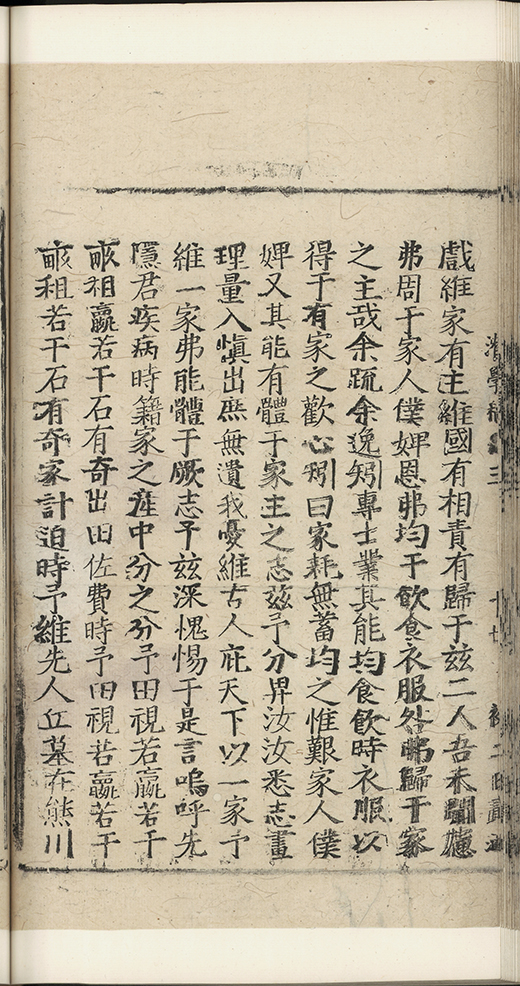 戲維家有主維國有相責有歸于兹二人吾未聞慮
弗周于家人僕婢恩弗均于飲食衣服咎弗歸于家
之主㢤余疏余逸矧專士業其能均食飲時衣服以
得于有家之歡心矧曰家耗無蓄均之惟艱家人僕
婢又其能有體于家主之志兹予分畀汝汝悉志畫
理量入愼出庶無遺我憂維古人庇天下以一家予
維一家弗能體于厥志予兹深愧惕于是言嗚呼先
隱君疾病時籍家之産中分之分予田視若贏若干
畝租若干石有奇出田佐費時予田視若贏若干
畝租若干石有奇家計迫時予維先人丘墓在熊川